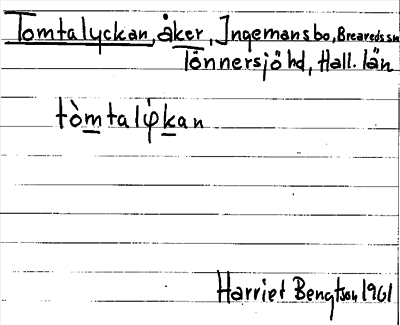 Tomtalyckan, åker, Ingemansbo, Breareds sn
Tönnersjö hd, Hall. län
tòmtalỳkan
Harriet Bengtson 1961